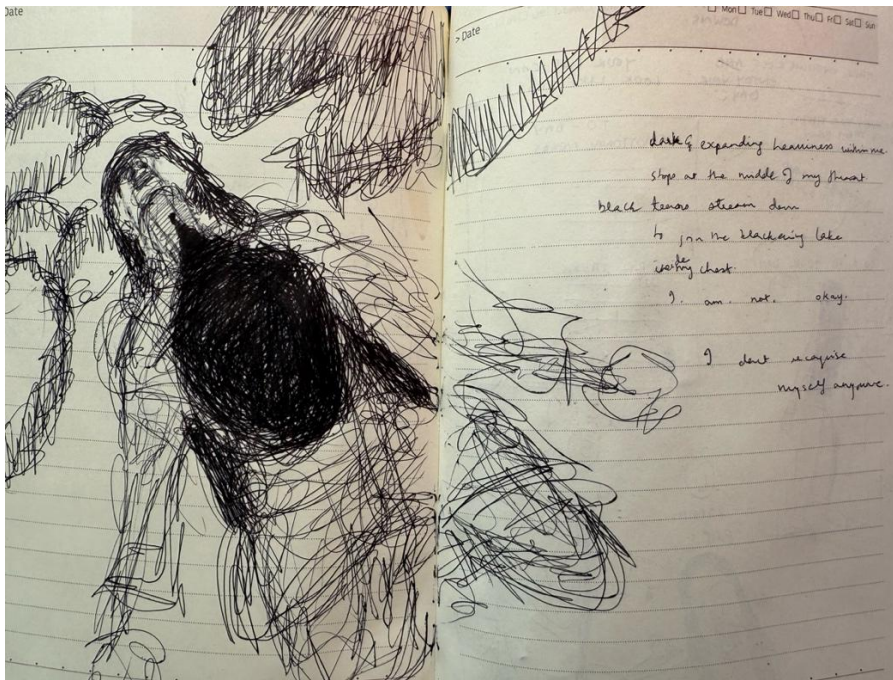 Date
> Date
Mon Tue Wed Thu Fri Sat Sun
dark & expanding heaviness within me.
stops at the middle of my throat
black tears stream down
to join the blackening lake
inside my chest.
I. am. not. okay.
I dont recognise
myself anymore.